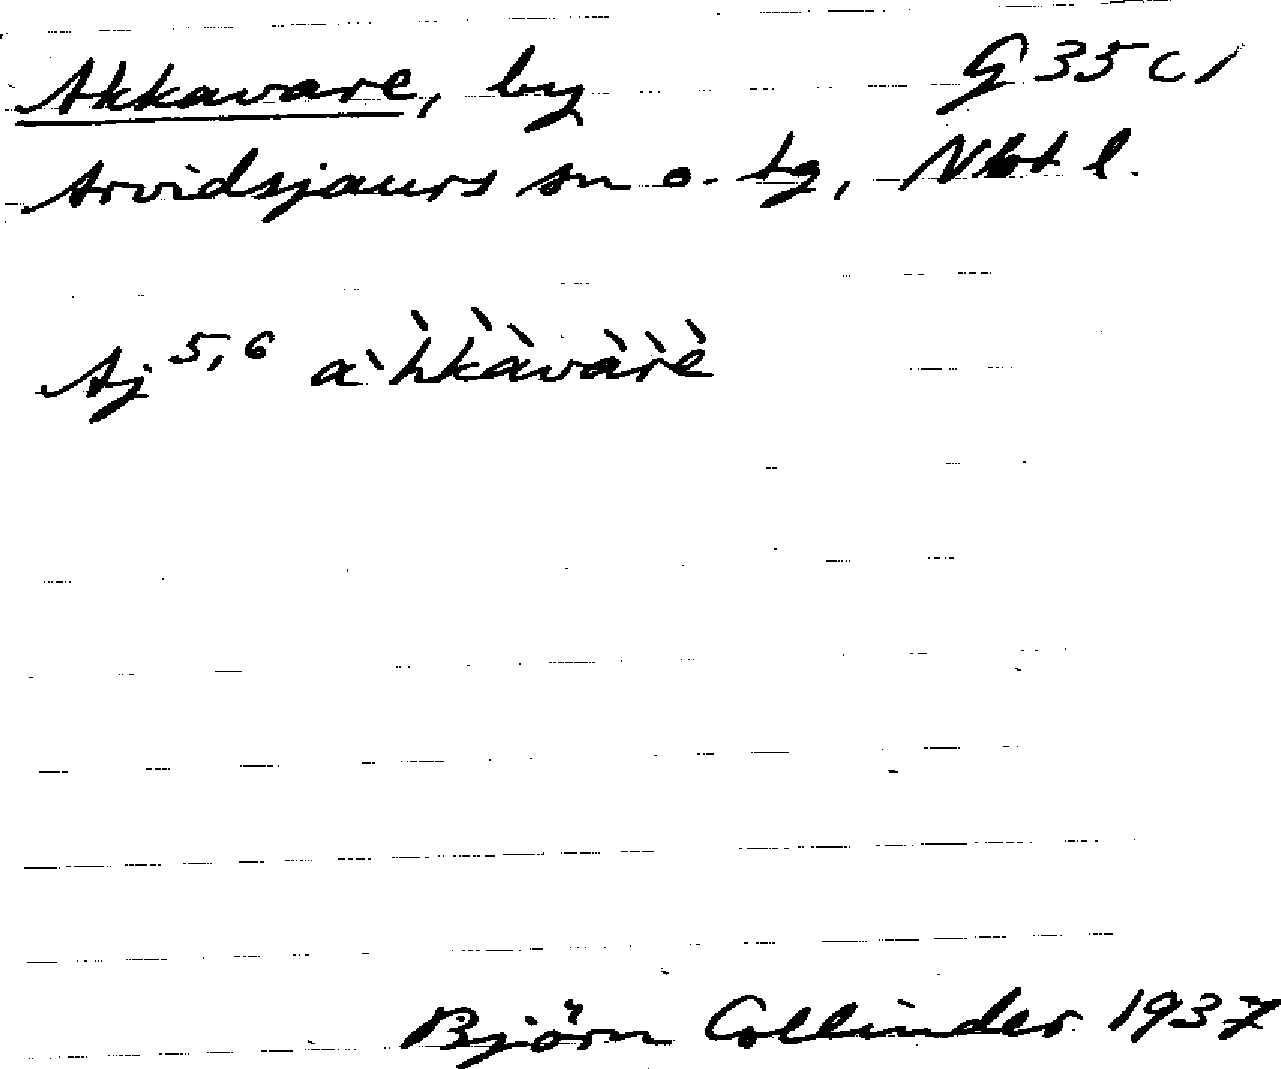 Akkavare, by G 35 c 1
Arvidsjaurs sn o. tg, Nbt l.
Aj 5,6 a`h̀k̀àvàr̀è
Björn Collinder 1937